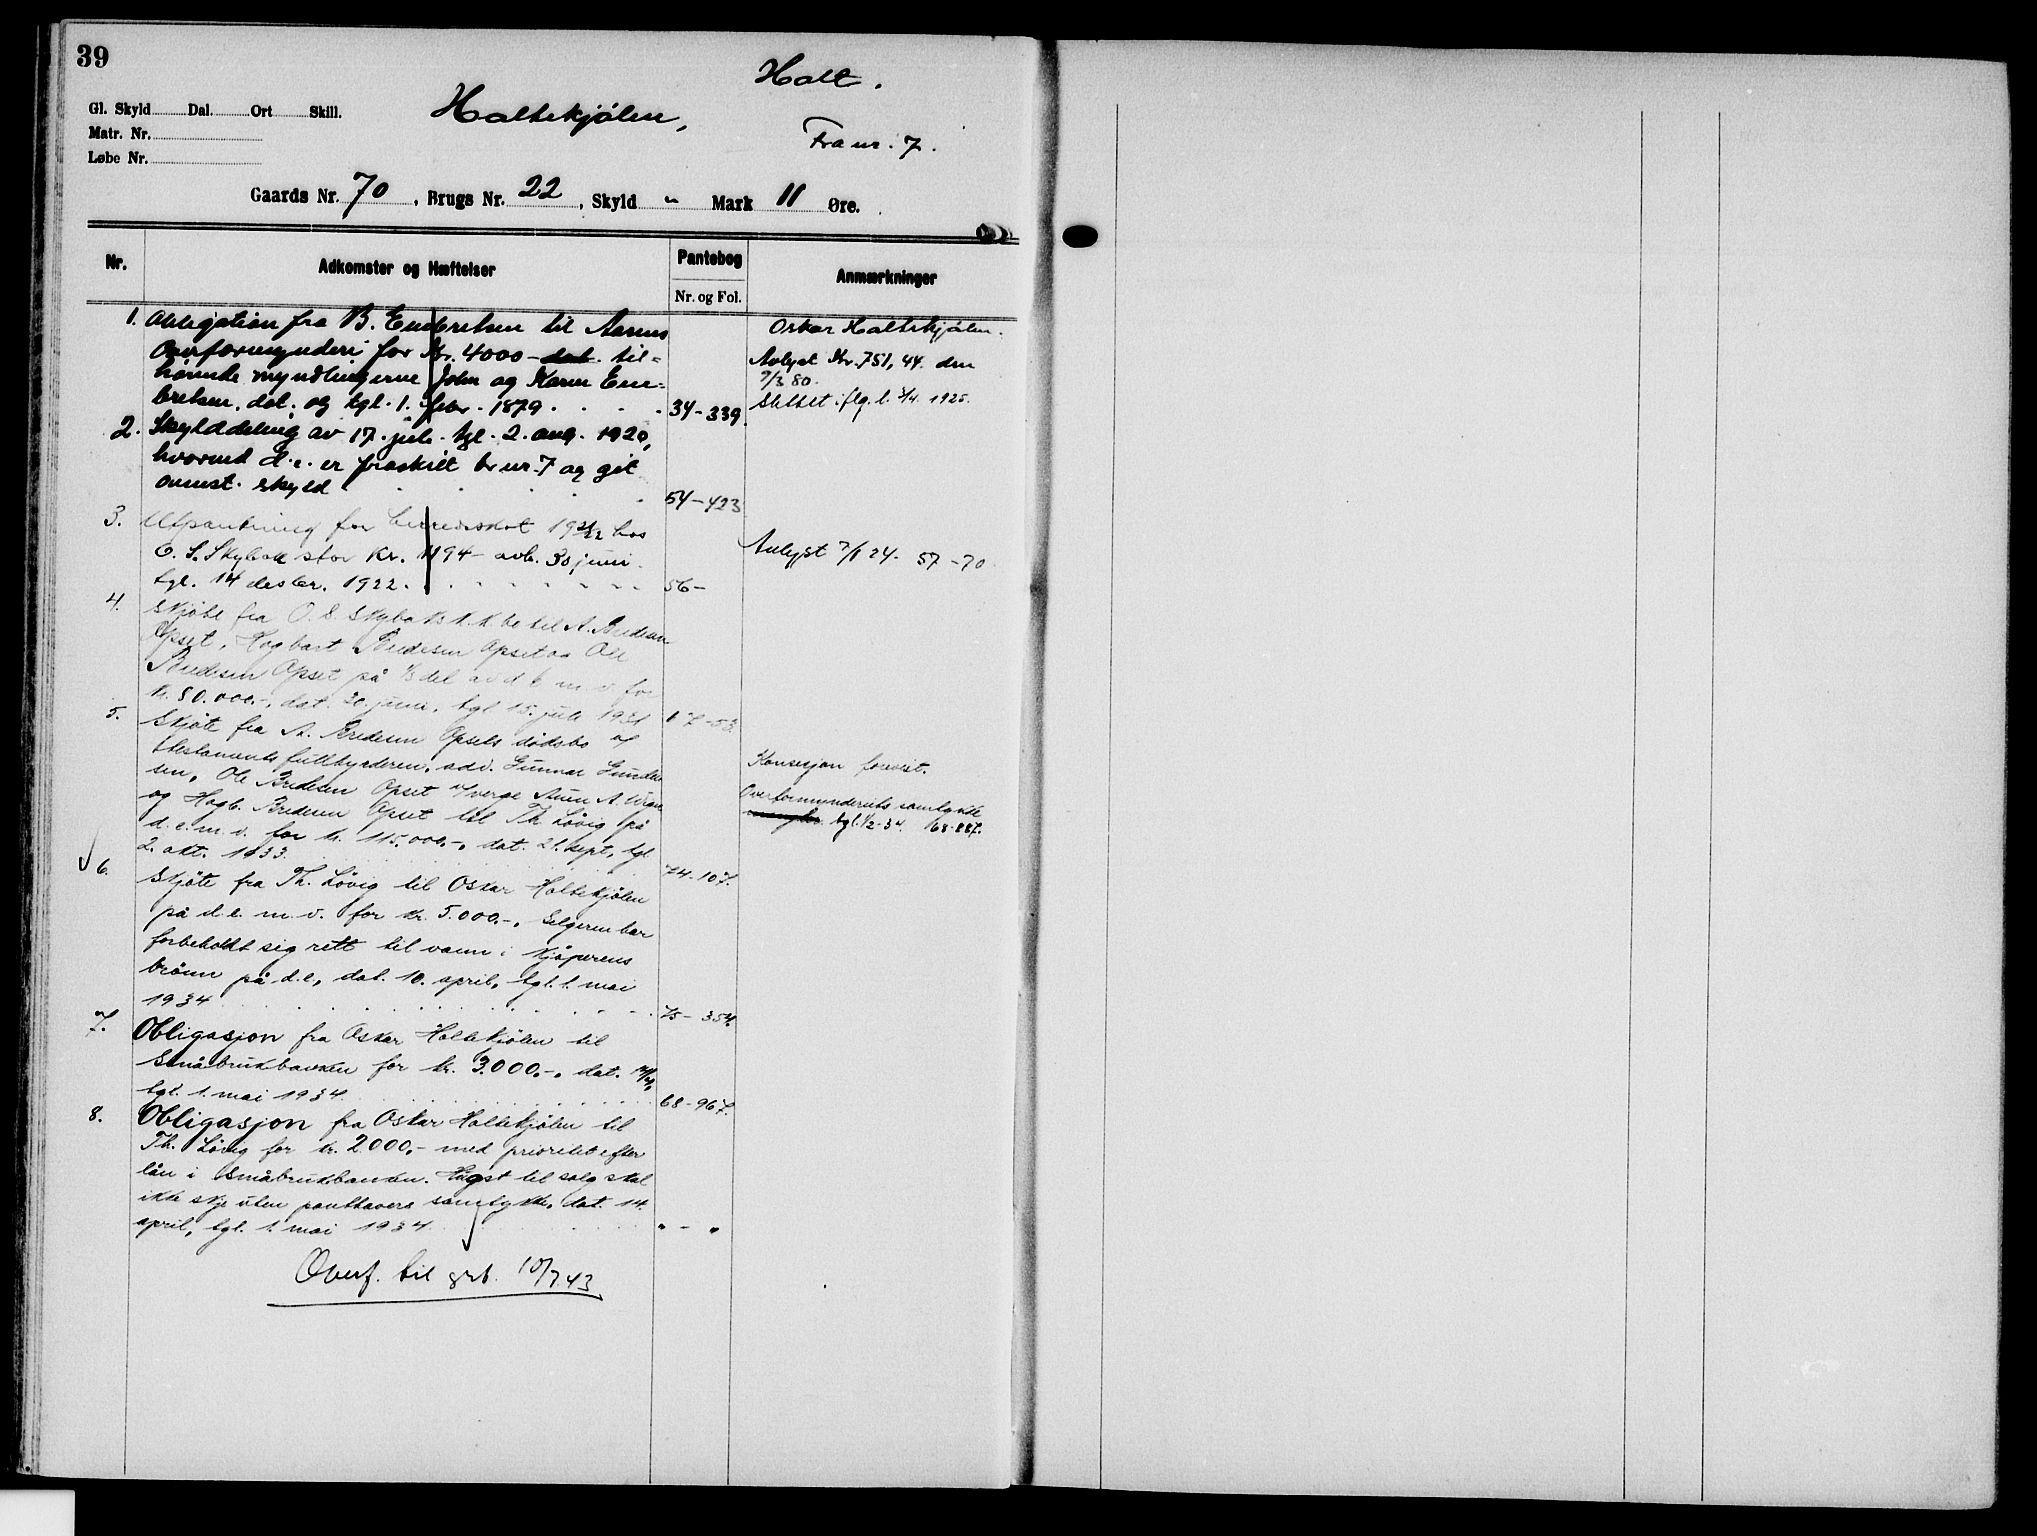 39
Holt.
Gl. Skyld Dal. Ort Skill.
Holtekjølen,
Matr. Nr.
Fra nr. 7.
Løbe Nr.
Gaards Nr. 70, Brugs Nr. 22, Skyld " Mark 11 Øre.
Nr. Adkomster og Hæftelser Pantebog Anmærkninger
Nr. og Fol.
1. Obligation fra B. Embretsen til Aasnes
Overformynderi for Kr. 4000 - dat. til=
hørende myndlingerne John og Karen Em=
bretsen. dat. og tgl. 1. febr. 1879. 34-339.
Oskar Holtekjølen.
Avlyst Kr. 751,44 den
9/3 80.
Slettet iflg. l. 3/4. 1925.
2. Skylddeling av 17. juli tgl. 2. aug. 1920,
hvorved d.e. er fraskilt br nr. 7 og git
ovenst. skyld 54-423
3. Utpantning for herredsskat 1921/22 hos
O. S. Skybak stor Kr. 1194 - avh. 30 juni
tgl. 14 desbr. 1922. 56-
Avlyst 7/1 24. 57-70
4. Skjøte fra O. S. Skybaks k.k.bo til A. Bredesen
Opset, Hagbart Bredesen Opset og Ole
Bredesen Opset på 1/3 del av d e m. v. for
kr. 80.000.-, dat. 20. juni, tgl 15. juli 1931 67-53.
5. Skjøte fra A. Bredesen Opsets dødsbo v/
testamentsfullbyrderen, adv. Gunnar Gunder
sen, Ole Bredesen Opset v/verge Auen A.
og Hagb. Bredesen Opset til Th. Løvig på
d. e. m. v. for kr. 115.000.-, dat. 21. sept, tgl
2. okt. 1933. 74-107.
Konsesjon forevist.
Overformynderiets samtykke
mangler tgl. 1/2-34. 68-887.
6. Skjøte fra Th. Løvig til Oskar Holtekjølen
på d. e. m. v. for kr. 5.000.-, Selgeren har
forbeholdt sig rett til vann i kjøperens
brønn på d.e, dat. 10. april, tgl. 1. mai
1934 75-354.
7. Obligasjon fra Oskar Holtekjølen til
Småbrukbanken for kr. 3.000.-, dat.
tgl. 1. mai 1934. 68-967.
8. Obligasjon fra Oskar Holtekjølen til
Th. Løvig for kr. 2.000.- med prioritet efter
lån i Småbrukbanken. Hugst til salg skal
ikke skje uten panthavers samtykke, dat. 14.
april, tgl. 1. mai 1934. " - "
Overf. til grb. 10/7.43